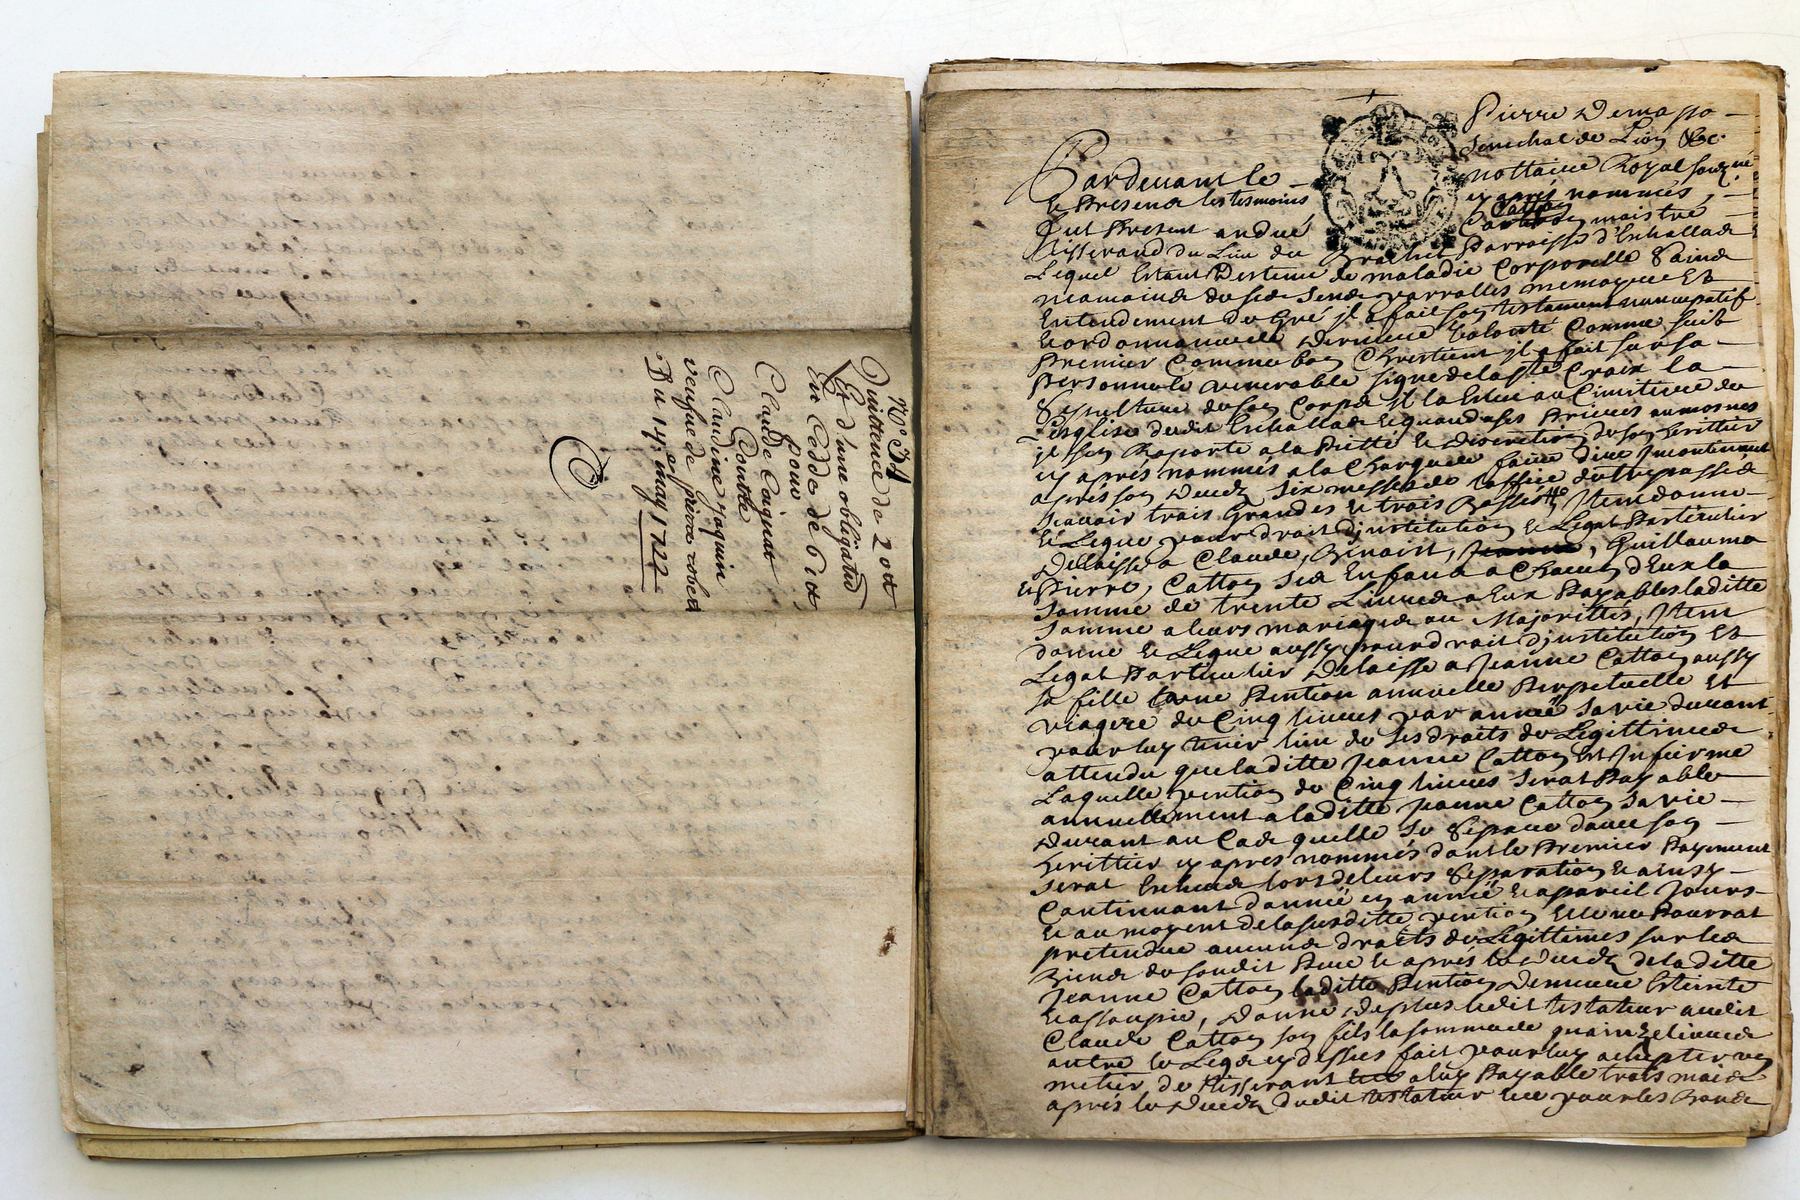 N.° 31
Quittence de 20tt
Et d'une obligation
En Cedde de 61tt
pour
Claude Caiquat
Contre
Claudine jaquin
veufue de pierre robert
Du 14e may 1722
Pierre Demasso
Senechal de Lion &c.
Pardeuant le nottaire Royal souzné
Et Presend les tesmoins cy aprés nommés,
fut Present andué Cattoz Cattoz maistre
tisserand du Lieu de Parroisse d'Eschallad
Lequel Estant Destenu de maladie Corporelle Saine
neamoinds de ses sends parrolles memoyre Et
Entendement de Gré il a fait son testament nuncupatif
Et ordonnance de Derniere Volonté Comme suit
Premier Comme bon Chrestient il a fait sur sa
Personne le venerable signe de la ste Croix la
Sepulture de son Corps Il la Eslit au Cimitiere de
L'esglise dudit Eschallad Et quand a ses Prieres aumosnes
il s'en Raporte a la Pietté Et Discretion de son herittier
cy aprés nommés a la Charge de faire dire Incontinent
apres son Decedz six messes de l'office de trespassed
scauoir trois Grandes Et trois Basses, Item donne
Et Legue pour droit d'institution Et Legat Particulier
Delaisse a Claude, Benoist, Jeanne, Guillaume
Et Pierre, Cattoz ses Enfand a Chacun d'Eux la
somme de trente Liures a Eux Payables laditte
somme a leurs mariage ou Majorittés, Item
donne Et Legue aussy pour droit d'institution Et
Legat Particulier Delaisse a Jeanne Cattoz aussy
sa fille une Pention annuelle Perpetuelle Et
viagere de Cinq liures par année sa vie durant
pour luy tenir lieu de ses droits de Legittimes
attendu que laditte Jeanne Cattoz Est Infirme
Laquelle pention de Cinq liures serat Payable
annuellement a laditte Jeanne Cattoz sa vie
durant au Cas quelle se separe dauec son
herittier cy apres nommés dont le Premier Payement
serat Eschud lors de leurs Separation Et ainsy
Continuant d'année en année Et a pareil Jours
Et au moyent de la susditte pention Elle ne Pourrat
pretendre aucunds droits de Legittimes sur les
Biends de sondit Pere Et aprés le Decedz de laditte
Jeanne Cattoz laditte Pention Demeure Esteinte
Et assoupie, Donne de plus ledit testateur audit
Claude Cattoz son fils la somme de quainze liures
outre le Legds cy dessus fait pour luy achepter un
metier de tisserant a luy Payable trois mois
aprés le Decedz dudit testateur Et pour les Bonds